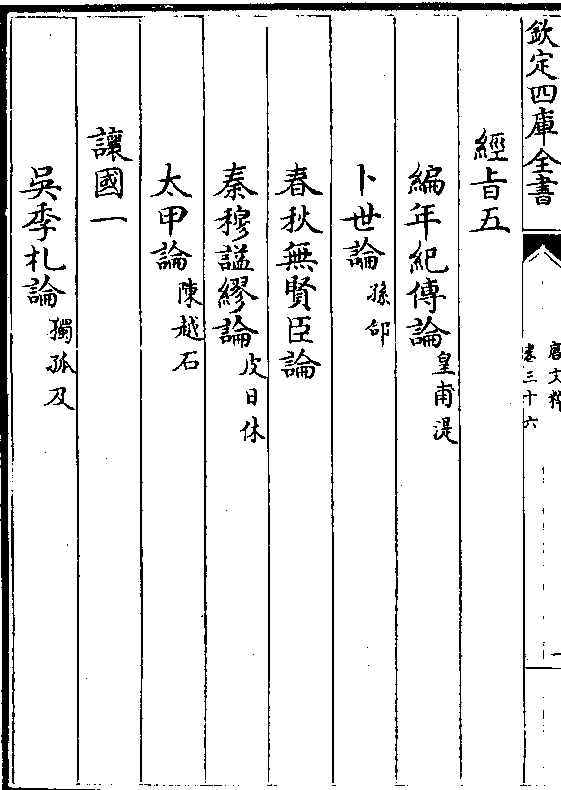 欽定四庫全書
唐文粹
卷三十六
經旨五
編年紀傳論皇甫湜
卜世論孫郃
春秋無賢臣論
秦穆謚繆論皮日休
太甲論陳越石
讓國一
吳季札論獨孤及